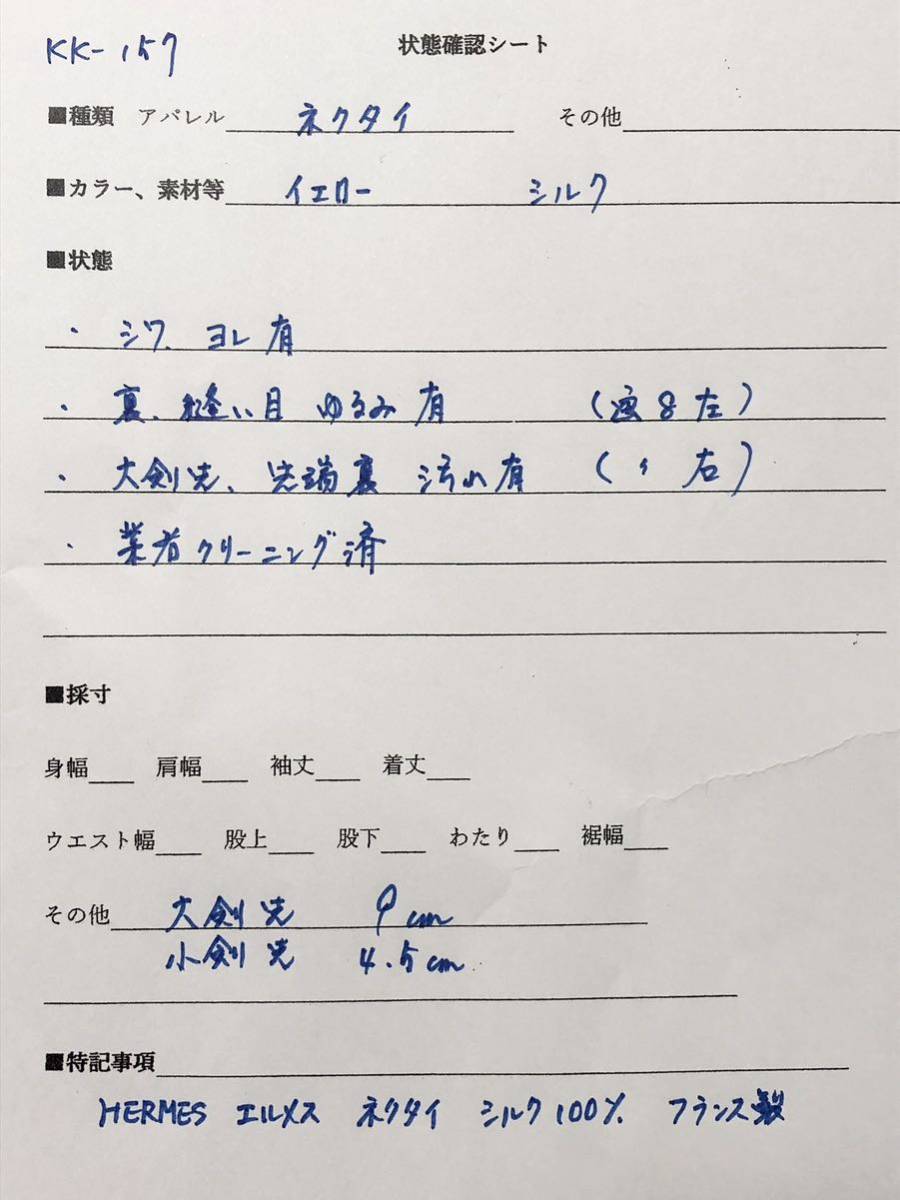 KK-157
状態確認シート
■種類 アパレル ネクタイ その他
■カラー、素材等 イエロー シルク
■状態
・ シワ、ヨレ 有
・ 裏、縫い目 ゆるみ 有 (画8左)
・ 大剣先、先端裏 汚れ有 (〃 右)
・ 業者クリーニング済
■採寸
身幅 肩幅 袖丈 着丈
ウエスト幅 股上 股下 わたり 裾幅
その他 大剣先 9cm
小剣先 4.5cm
■特記事項
HERMES エルメス ネクタイ シルク100% フランス製